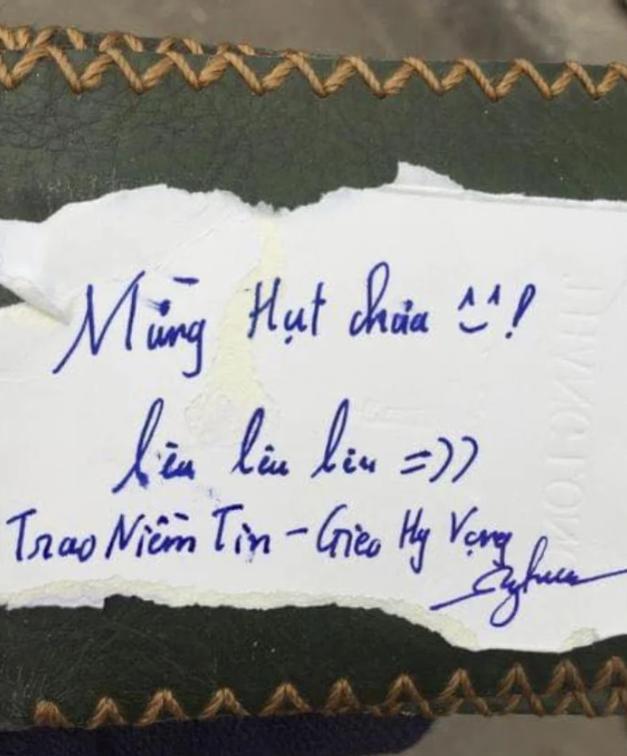 Mừng Hụt chửa ^^!
lêu lêu lêu =))
Trao Niềm Tin - Gieo Hy Vọng
THANG LONG